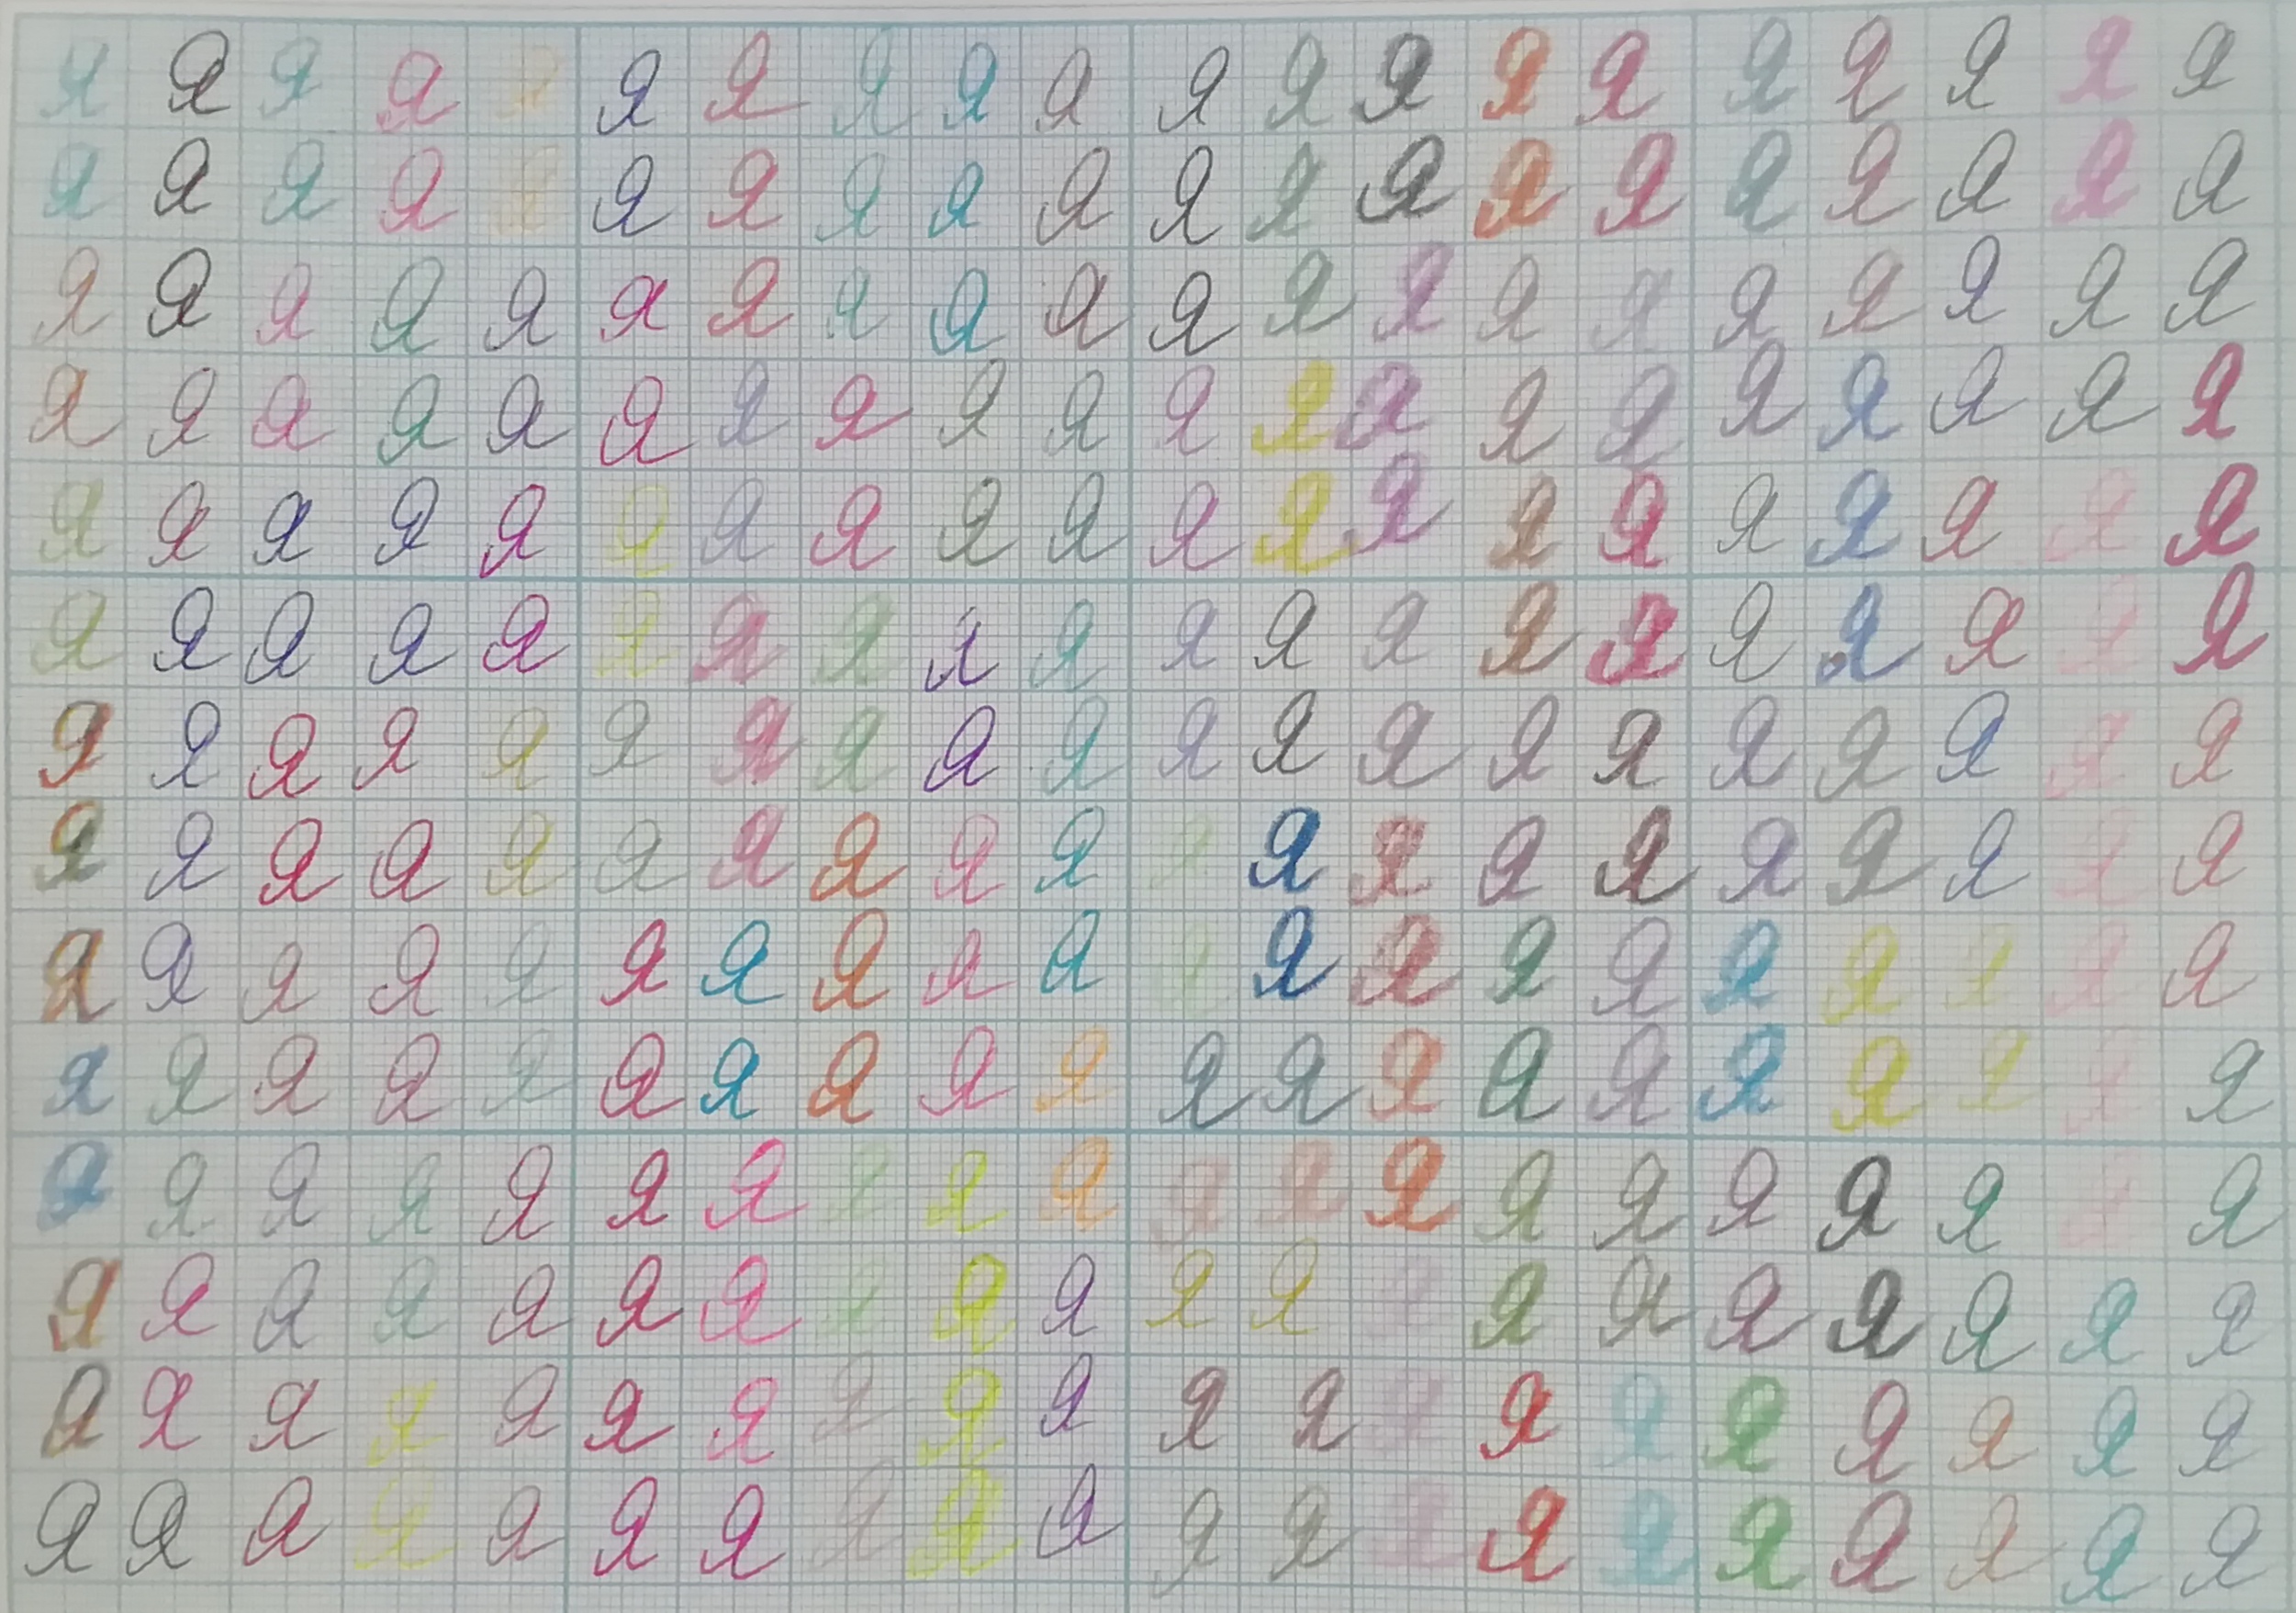 я я я я я я я я я я я я я я я я я я я я
я я я я я я я я я я я я я я я я я я я я
я я я я я я я я я я я я я я я я я я я я
я я я я я я я я я я я я я я я я я я я я
я я я я я я я я я я я я я я я я я я я я
я я я я я я я я я я я я я я я я я я я я
я я я я я я я я я я я я я я я я я я я я
я я я я я я я я я я я я я я я я я я я я
я я я я я я я я я я я я я я я я я я я я
я я я я я я я я я я я я я я я я я я я я
я я я я я я я я я я я я я я я я я я я я
я я я я я я я я я я я я я я я я я я я я
я я я я я я я я я я я я я я я я я я я я
я я я я я я я я я я я я я я я я я я я я